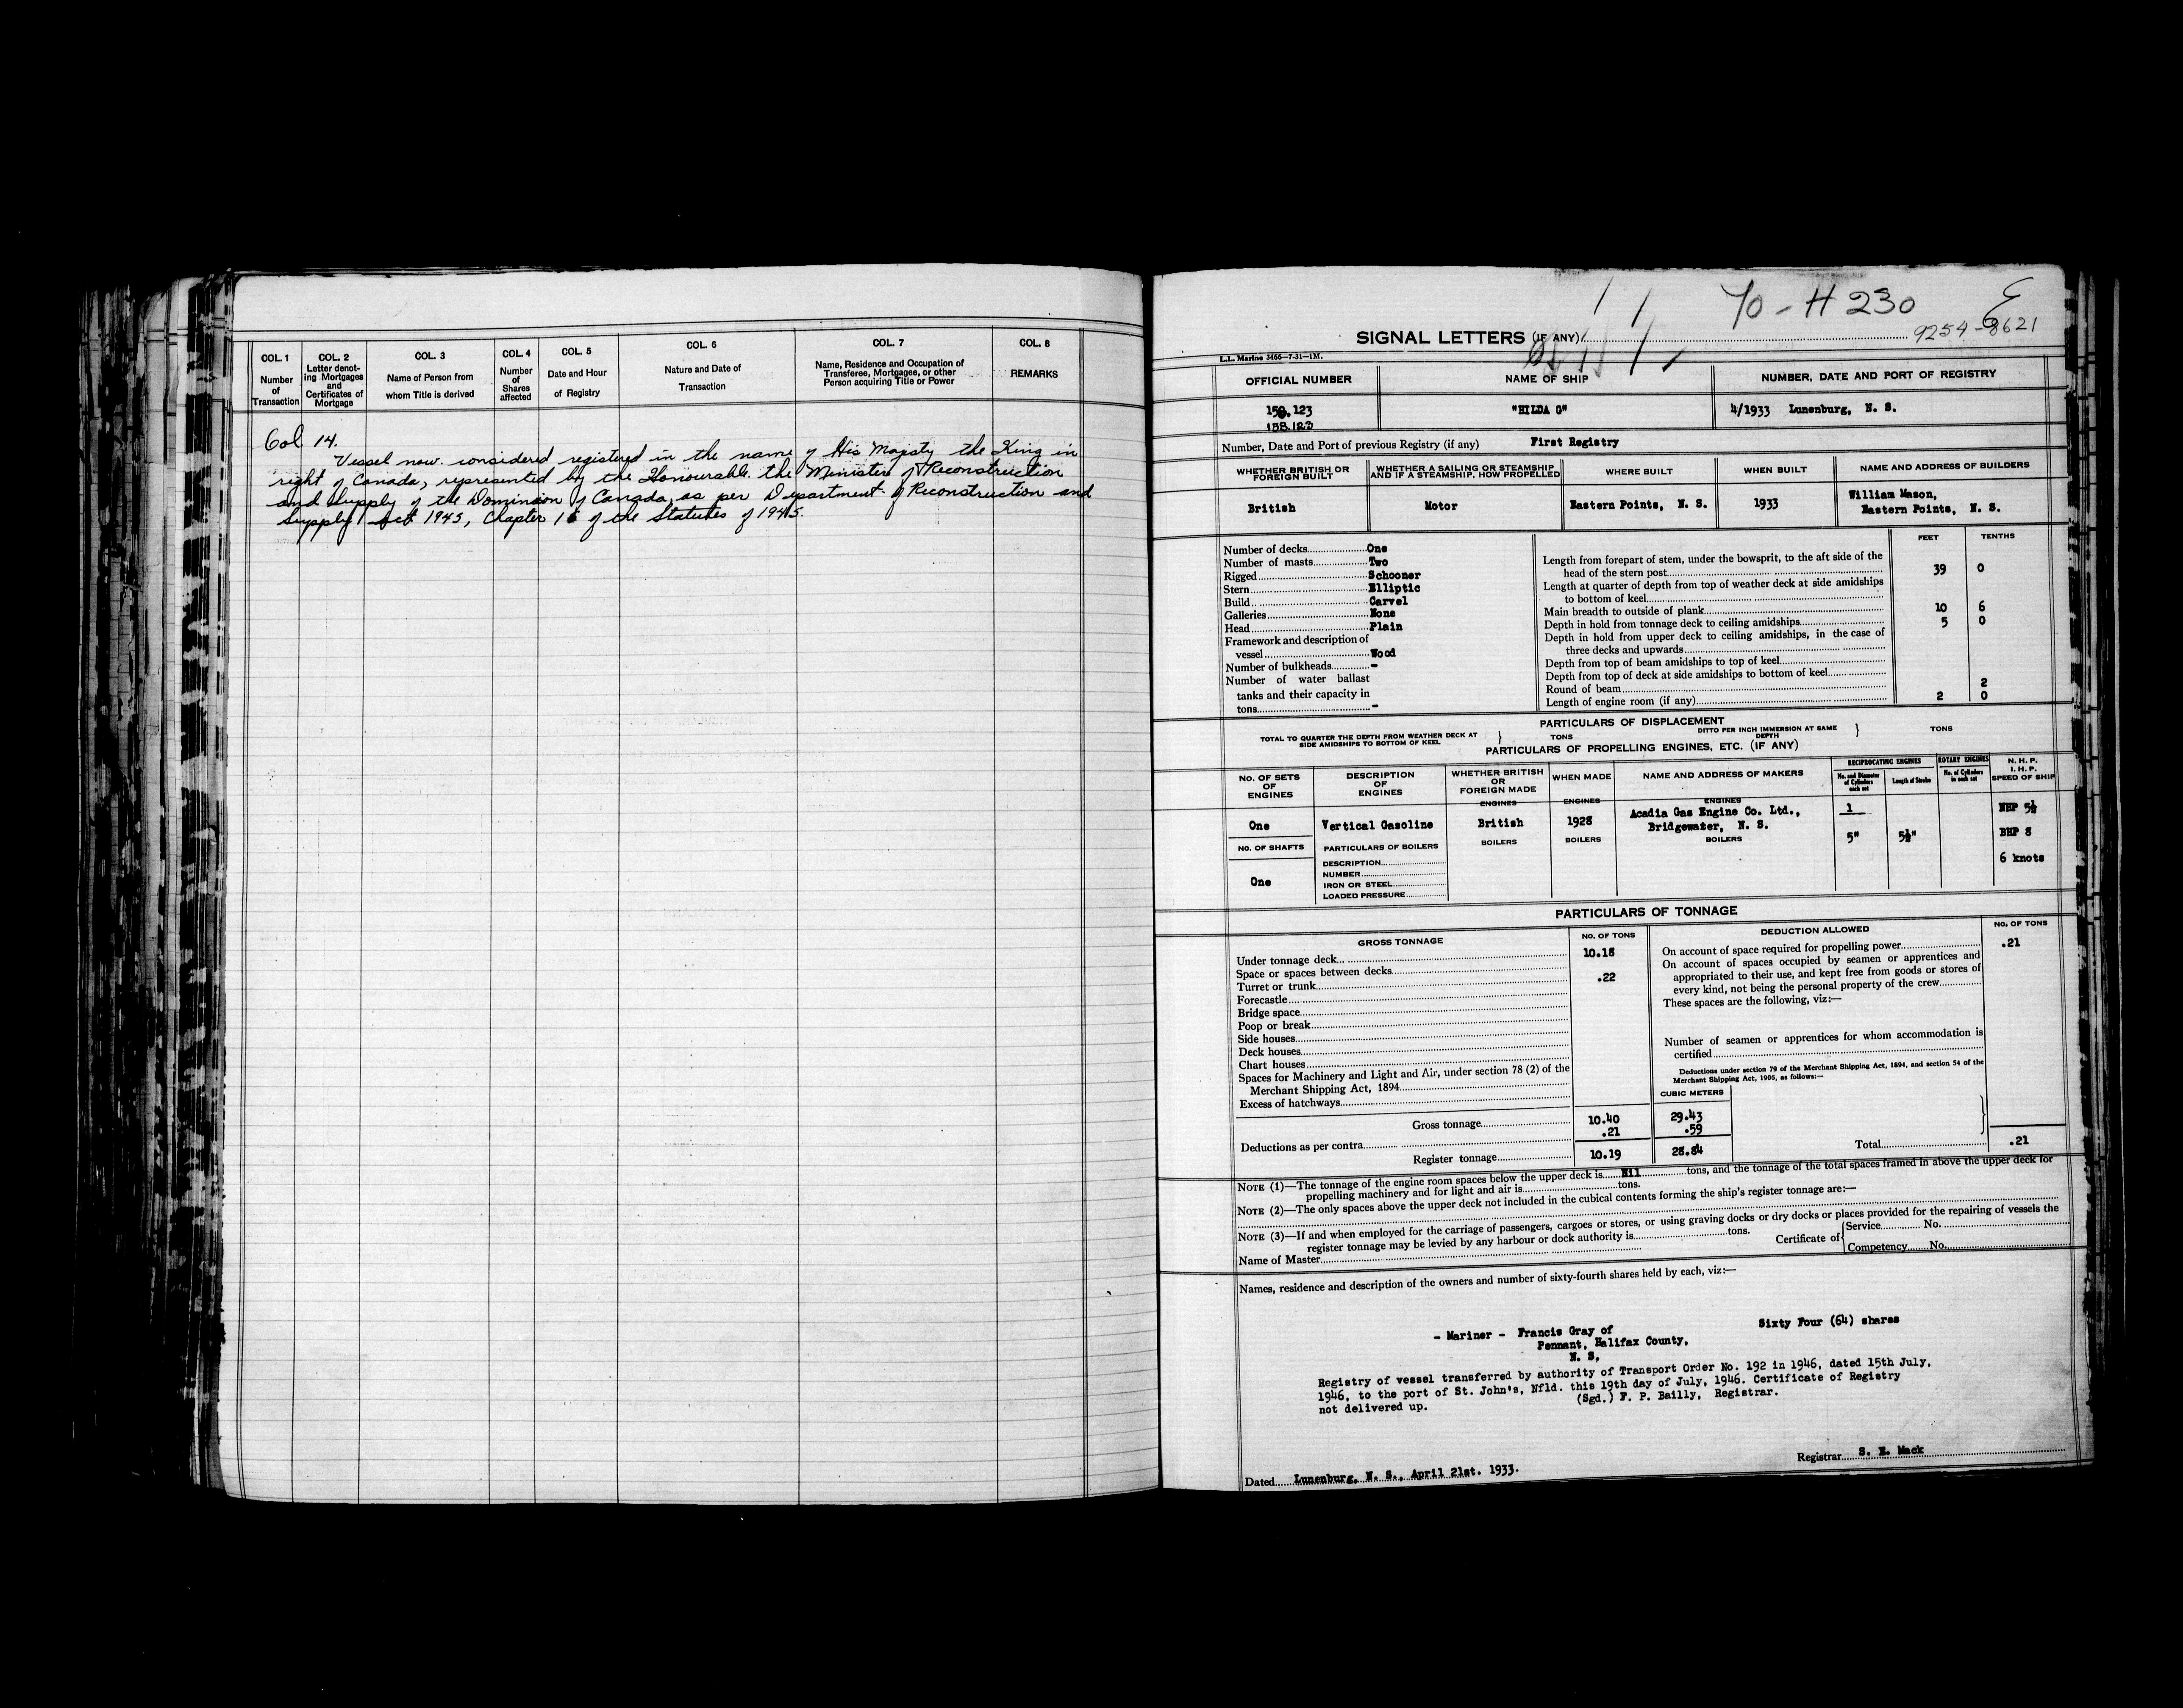 COL. 1 Number of Transaction
COL. 2 Letter denoting Mortgages and Certificates of Mortgage
COL. 3 Name of Person from whom Title is derived
COL. 4 Number of Shares affected
COL. 5 Date and Hour of Registry
COL. 6 Nature and Date of Transaction
COL. 7 Name, Residence and Occupation of Transferee, Mortgagee, or other Person acquiring Title or Power
COL. 8 REMARKS
Col 14.
Vessel now considered registered in the name of His Majesty the King in
right of Canada, represented by the Honourable the Minister of Reconstruction
and Supply of the Dominion of Canada, as per Department of Reconstruction and
Supply Act 1945, Chapter 16 of the Statutes of 1945.
70 - H 230
9254-8621
SIGNAL LETTERS (IF ANY)
L.L. Marine 3466—7-31—1M.
OFFICIAL NUMBER NAME OF SHIP NUMBER, DATE AND PORT OF REGISTRY
159,123 "HILDA G" 4/1933 Lunenburg, N. S.
158,123
Number, Date and Port of previous Registry (if any) First Registry
WHETHER BRITISH OR FOREIGN BUILT
WHETHER A SAILING OR STEAMSHIP AND IF A STEAMSHIP, HOW PROPELLED
WHERE BUILT
WHEN BUILT
NAME AND ADDRESS OF BUILDERS
British Motor Eastern Points, N. S. 1933
William Mason,
Eastern Points, N. S.
Number of decks One
Number of masts Two
Rigged Schooner
Stern Elliptic
Build Carvel
Galleries None
Head Plain
Framework and description of
vessel Wood
Number of bulkheads -
Number of water ballast
tanks and their capacity in
tons -
FEET TENTHS
Length from forepart of stem, under the bowsprit, to the aft side of the
head of the stern post 39 0
Length at quarter of depth from top of weather deck at side amidships
to bottom of keel
Main breadth to outside of plank 10 6
Depth in hold from tonnage deck to ceiling amidships 5 0
Depth in hold from upper deck to ceiling amidships, in the case of
three decks and upwards
Depth from top of beam amidships to top of keel
Depth from top of deck at side amidships to bottom of keel
Round of beam 2
Length of engine room (if any) 2 0
PARTICULARS OF DISPLACEMENT
TOTAL TO QUARTER THE DEPTH FROM WEATHER DECK AT SIDE AMIDSHIPS TO BOTTOM OF KEEL } TONS DITTO PER INCH IMMERSION AT SAME DEPTH } TONS
PARTICULARS OF PROPELLING ENGINES, ETC. (IF ANY)
No. OF SETS OF ENGINES
DESCRIPTION OF ENGINES
WHETHER BRITISH OR FOREIGN MADE
WHEN MADE
NAME AND ADDRESS OF MAKERS
RECIPROCATING ENGINES
No. and Diameter of Cylinders each set
Length of Stroke
ROTARY ENGINES
No. of Cylinders in each set
N. H. P.
I. H. P.
SPEED OF SHIP
ENGINES ENGINES ENGINES
One Vertical Gasoline British 1928 Acadia Gas Engine Co. Ltd.,
Bridgewater, N. S.
1 NHP 5½
5" 5½" BHP 8
6 knots
No. OF SHAFTS PARTICULARS OF BOILERS BOILERS BOILERS BOILERS
One
DESCRIPTION
NUMBER
IRON OR STEEL
LOADED PRESSURE
PARTICULARS OF TONNAGE
GROSS TONNAGE No. OF TONS
Under tonnage deck 10.18
Space or spaces between decks
Turret or trunk .22
Forecastle
Bridge space
Poop or break
Side houses
Deck houses
Chart houses
Spaces for Machinery and Light and Air, under section 78 (2) of the
Merchant Shipping Act, 1894
Excess of hatchways
CUBIC METERS
Gross tonnage 10.40 29.43
Deductions as per contra .21 .59
Register tonnage 10.19 28.84
DEDUCTION ALLOWED No. OF TONS
On account of space required for propelling power .21
On account of spaces occupied by seamen or apprentices and
appropriated to their use, and kept free from goods or stores of
every kind, not being the personal property of the crew
These spaces are the following, viz:—
Number of seamen or apprentices for whom accommodation is
certified
Deductions under section 79 of the Merchant Shipping Act, 1894, and section 54 of the
Merchant Shipping Act, 1906, as follows:—
Total .21
NOTE (1)—The tonnage of the engine room spaces below the upper deck is Nil tons, and the tonnage of the total spaces framed in above the upper deck for
propelling machinery and for light and air is tons.
NOTE (2)—The only spaces above the upper deck not included in the cubical contents forming the ship's register tonnage are:—
NOTE (3)—If and when employed for the carriage of passengers, cargoes or stores, or using graving docks or dry docks or places provided for the repairing of vessels the
register tonnage may be levied by any harbour or dock authority is tons.
Name of Master
Certificate of { Service No.
Competency No.
Names, residence and description of the owners and number of sixty-fourth shares held by each, viz:—
- Mariner - Francis Gray of Sixty Four (64) shares
Pennant, Halifax County,
N. S.
Registry of vessel transferred by authority of Transport Order No. 192 in 1946, dated 15th July,
1946, to the port of St. John's, Nfld. this 19th day of July, 1946. Certificate of Registry
not delivered up. (Sgd.) F. P. Bailly, Registrar.
Dated Lunenburg, N. S., April 21st. 1933.
Registrar S. E. Mack